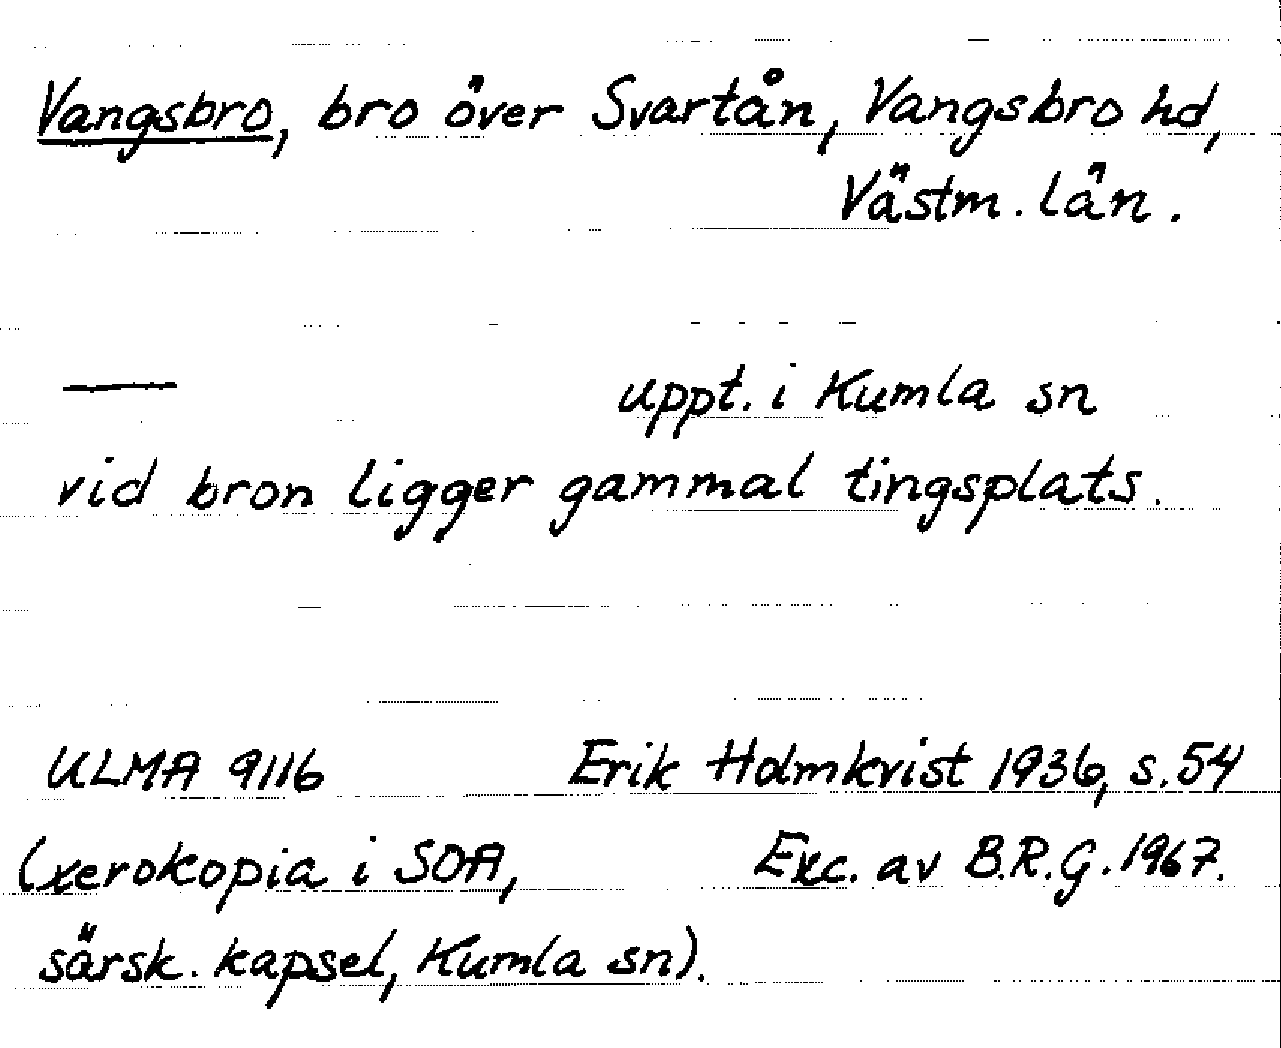 Vangsbro, bro över Svartån, Vangsbro hd,
Västm. län.
— uppt. i Kumla sn
vid bron ligger gammal tingsplats.
ULMA 9116 Erik Holmkvist 1936, s.54
(xerokopia i SOA, Exc. av B.R.G. 1967.
särsk. kapsel, Kumla sn).